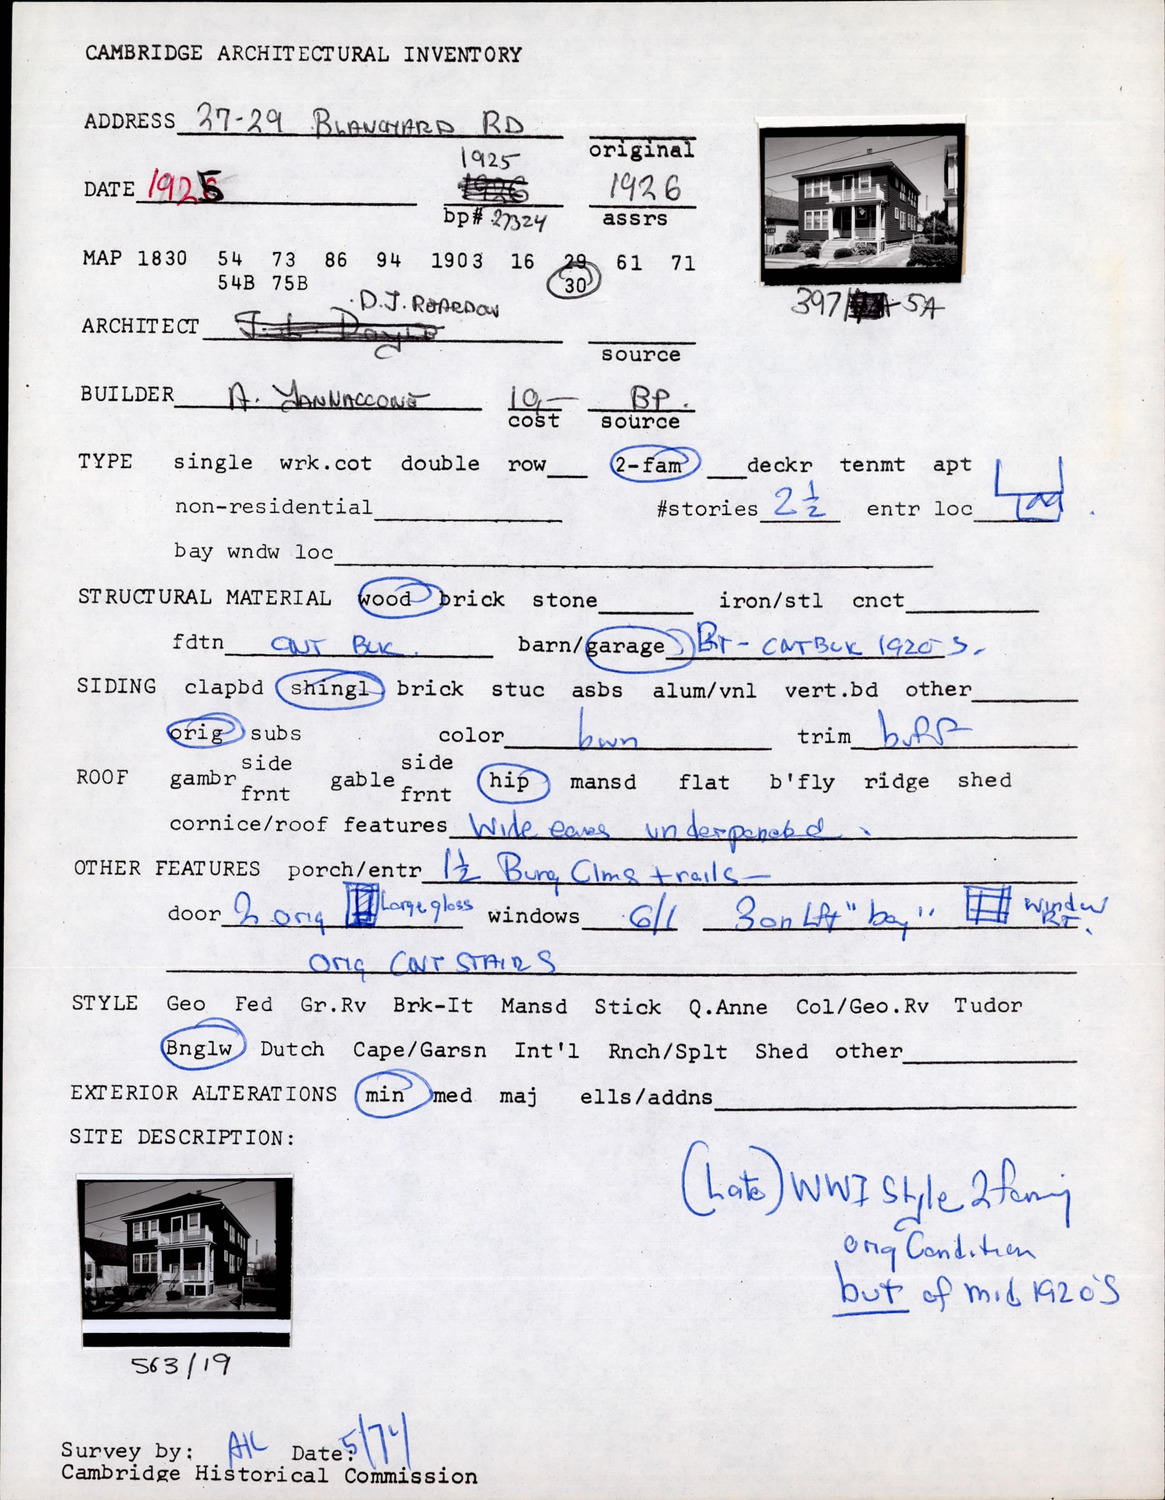 CAMBRIDGE ARCHITECTURAL INVENTORY
ADDRESS 27-29 BLANCHARD RD
original
DATE 1925 1925 1926
bp# 27324 assrs
MAP 1830 54 73 86 94 1903 16 29 61 71
54B 75B 30
D.J. REARDON
ARCHITECT
source
397/ 5A
BUILDER A. YANNACCONE 10- BP.
cost source
TYPE single wrk.cot double row 2-fam deckr tenmt apt
non-residential #stories 2 1/2 entr loc
bay wndw loc
STRUCTURAL MATERIAL wood brick stone iron/stl cnct
fdtn CNT BLK. barn/garage RT - CNTBLK 1920'S.
SIDING clapbd shingl brick stuc asbs alum/vnl vert.bd other
orig subs color bwn trim buff
side side
ROOF gambr gable hip mansd flat b'fly ridge shed
frnt frnt
cornice/roof features Wide eaves underpaneled.
OTHER FEATURES porch/entr 1 1/2 Bung Clms + rails-
door 2 orig Large glass windows 6/1 3 on Lft "bay" window RT.
orig CNT STAIRS
STYLE Geo Fed Gr.Rv Brk-It Mansd Stick Q.Anne Col/Geo.Rv Tudor
Bnglw Dutch Cape/Garsn Int'l Rnch/Splt Shed other
EXTERIOR ALTERATIONS min med maj ells/addns
SITE DESCRIPTION:
(Late) WWI Style 2 family
orig Condition
but of mid 1920'S
563/19
Survey by: Date: 5/74
Cambridge Historical Commission